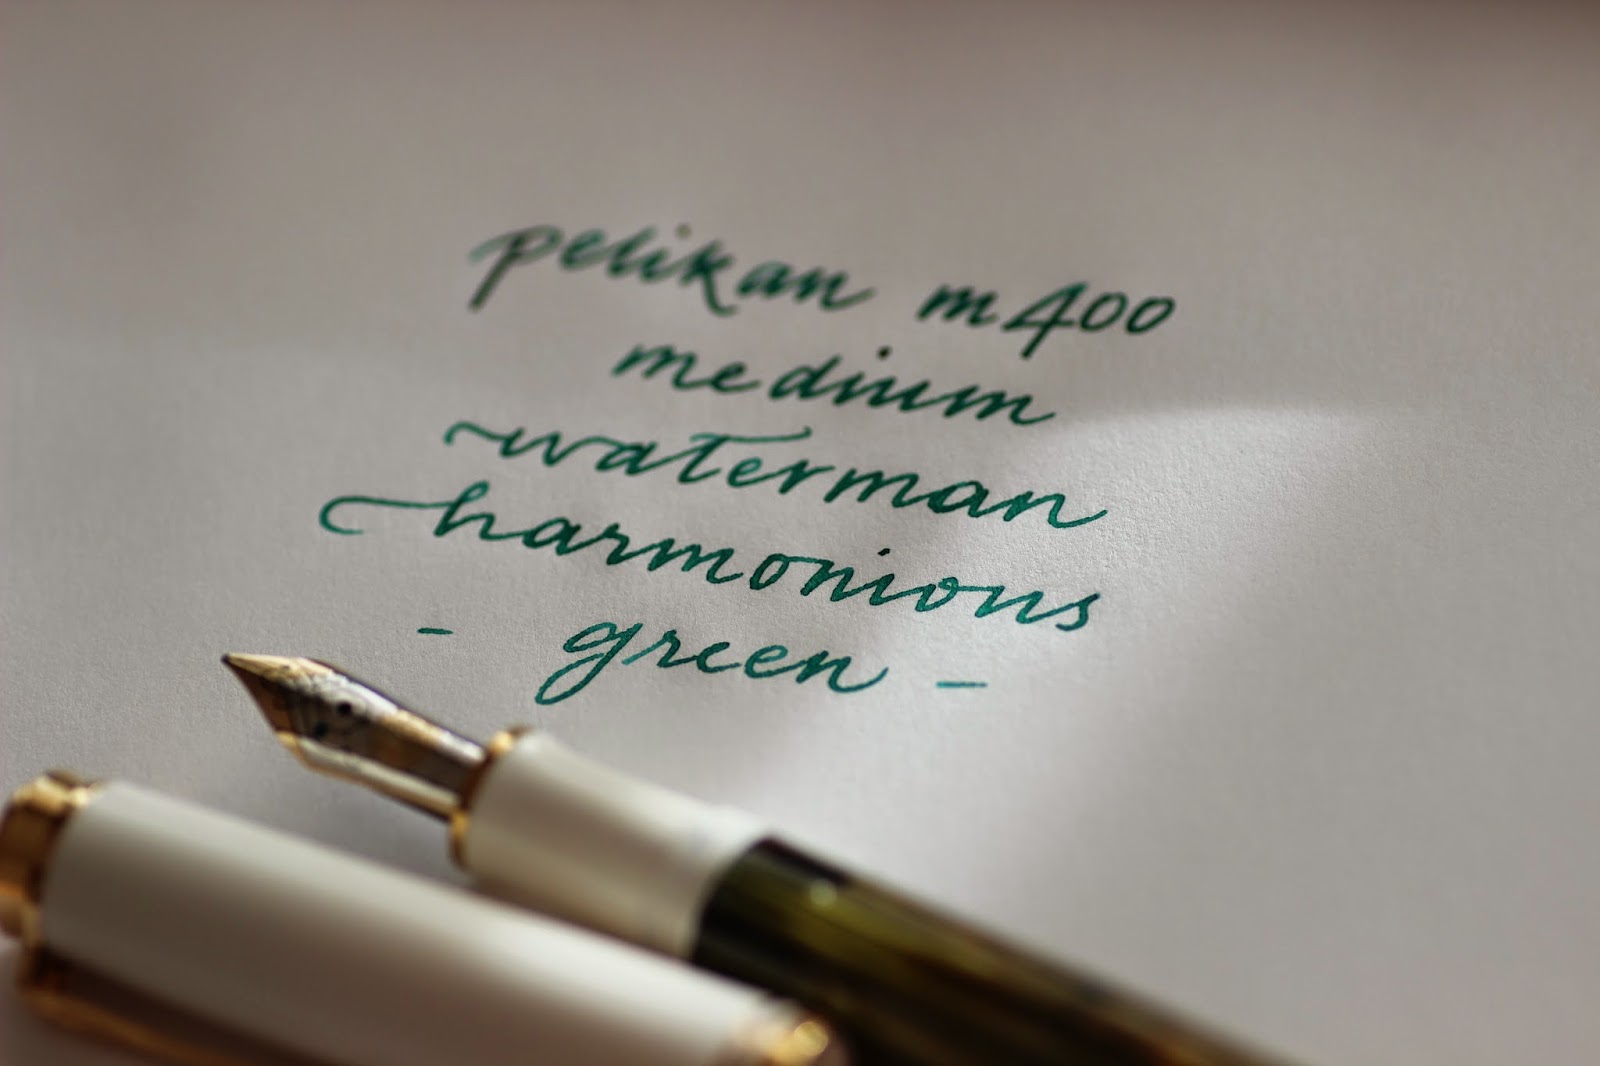 pelikan m400
medium
waterman
harmonious
- green -